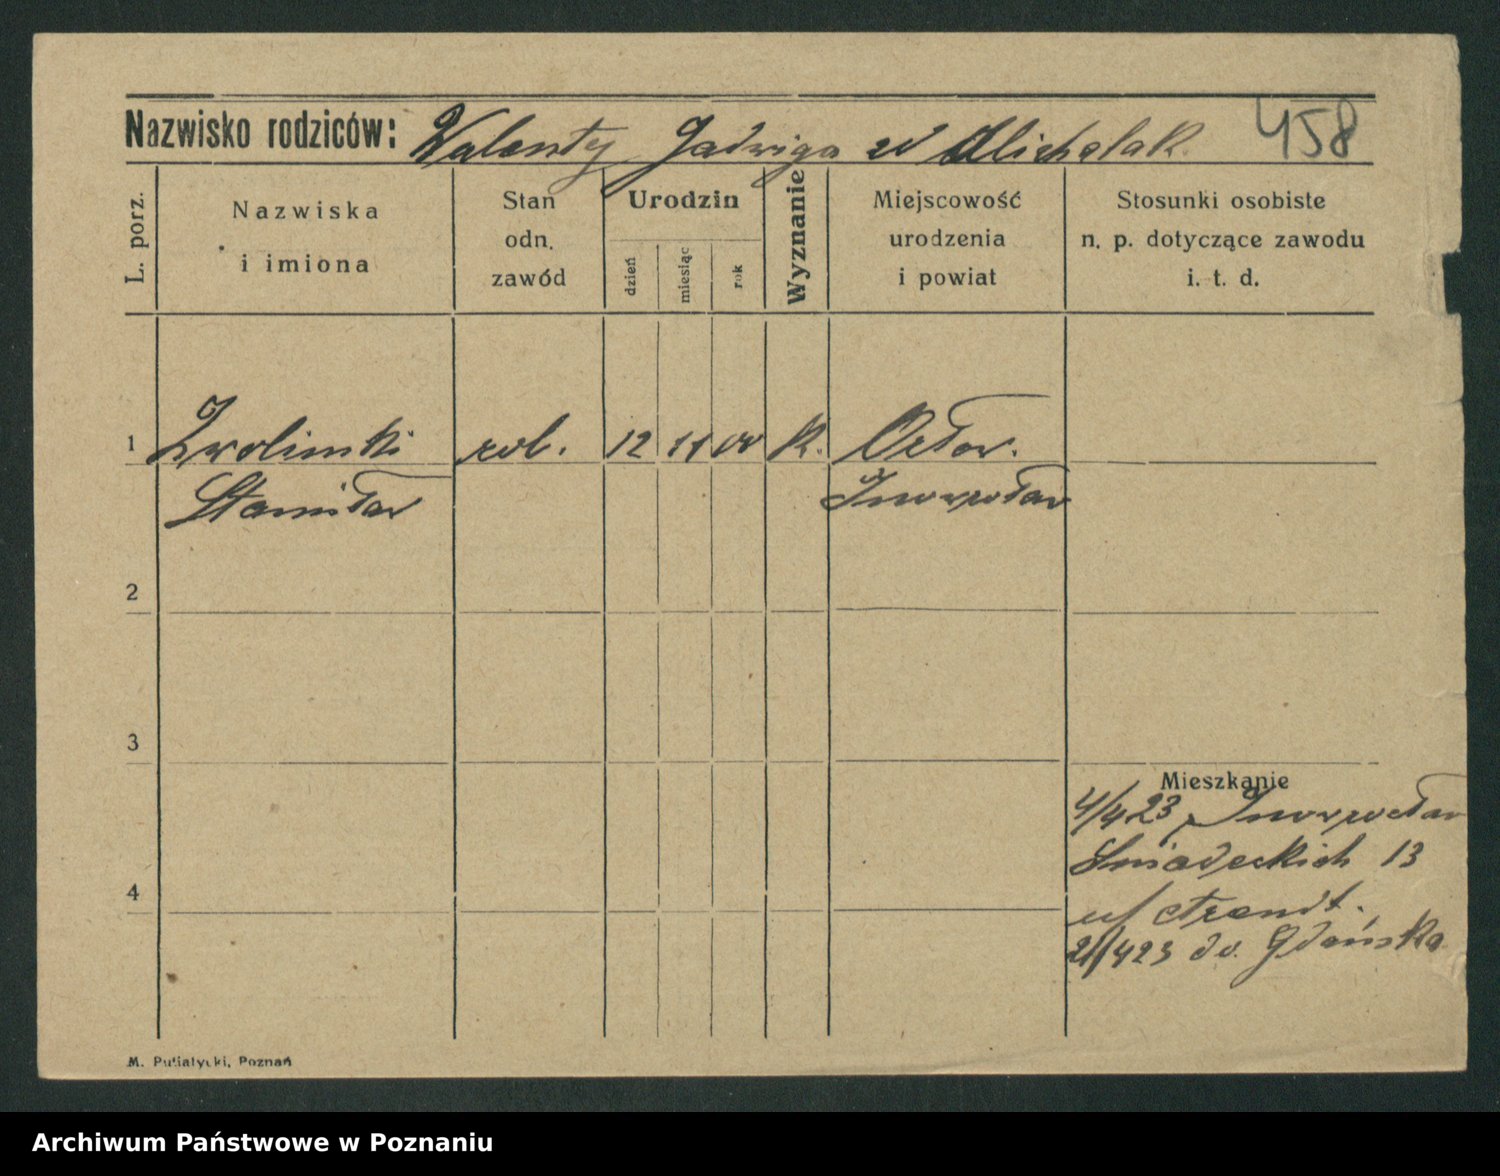 Nazwisko rodziców: Walenty Jadwiga zd Michalak 458
L. porz.
Nazwiska
i imiona
Stan
odn.
zawód
Urodzin
dzień
miesiąc
rok
Wyznanie
Miejscowość
urodzenia
i powiat
Stosunki osobiste
n. p. dotyczące zawodu
i. t. d.
1 Zwolinski rob. 12 11 00 k. Orłow.
Stanisław Inowrocław
2
3
Mieszkanie
4/4 23 Inowrocław
Śniadeckich 13
4
u/ Arendt.
21/423 do Gdańska
M. Putiatycki, Poznań
Archiwum Państwowe w Poznaniu